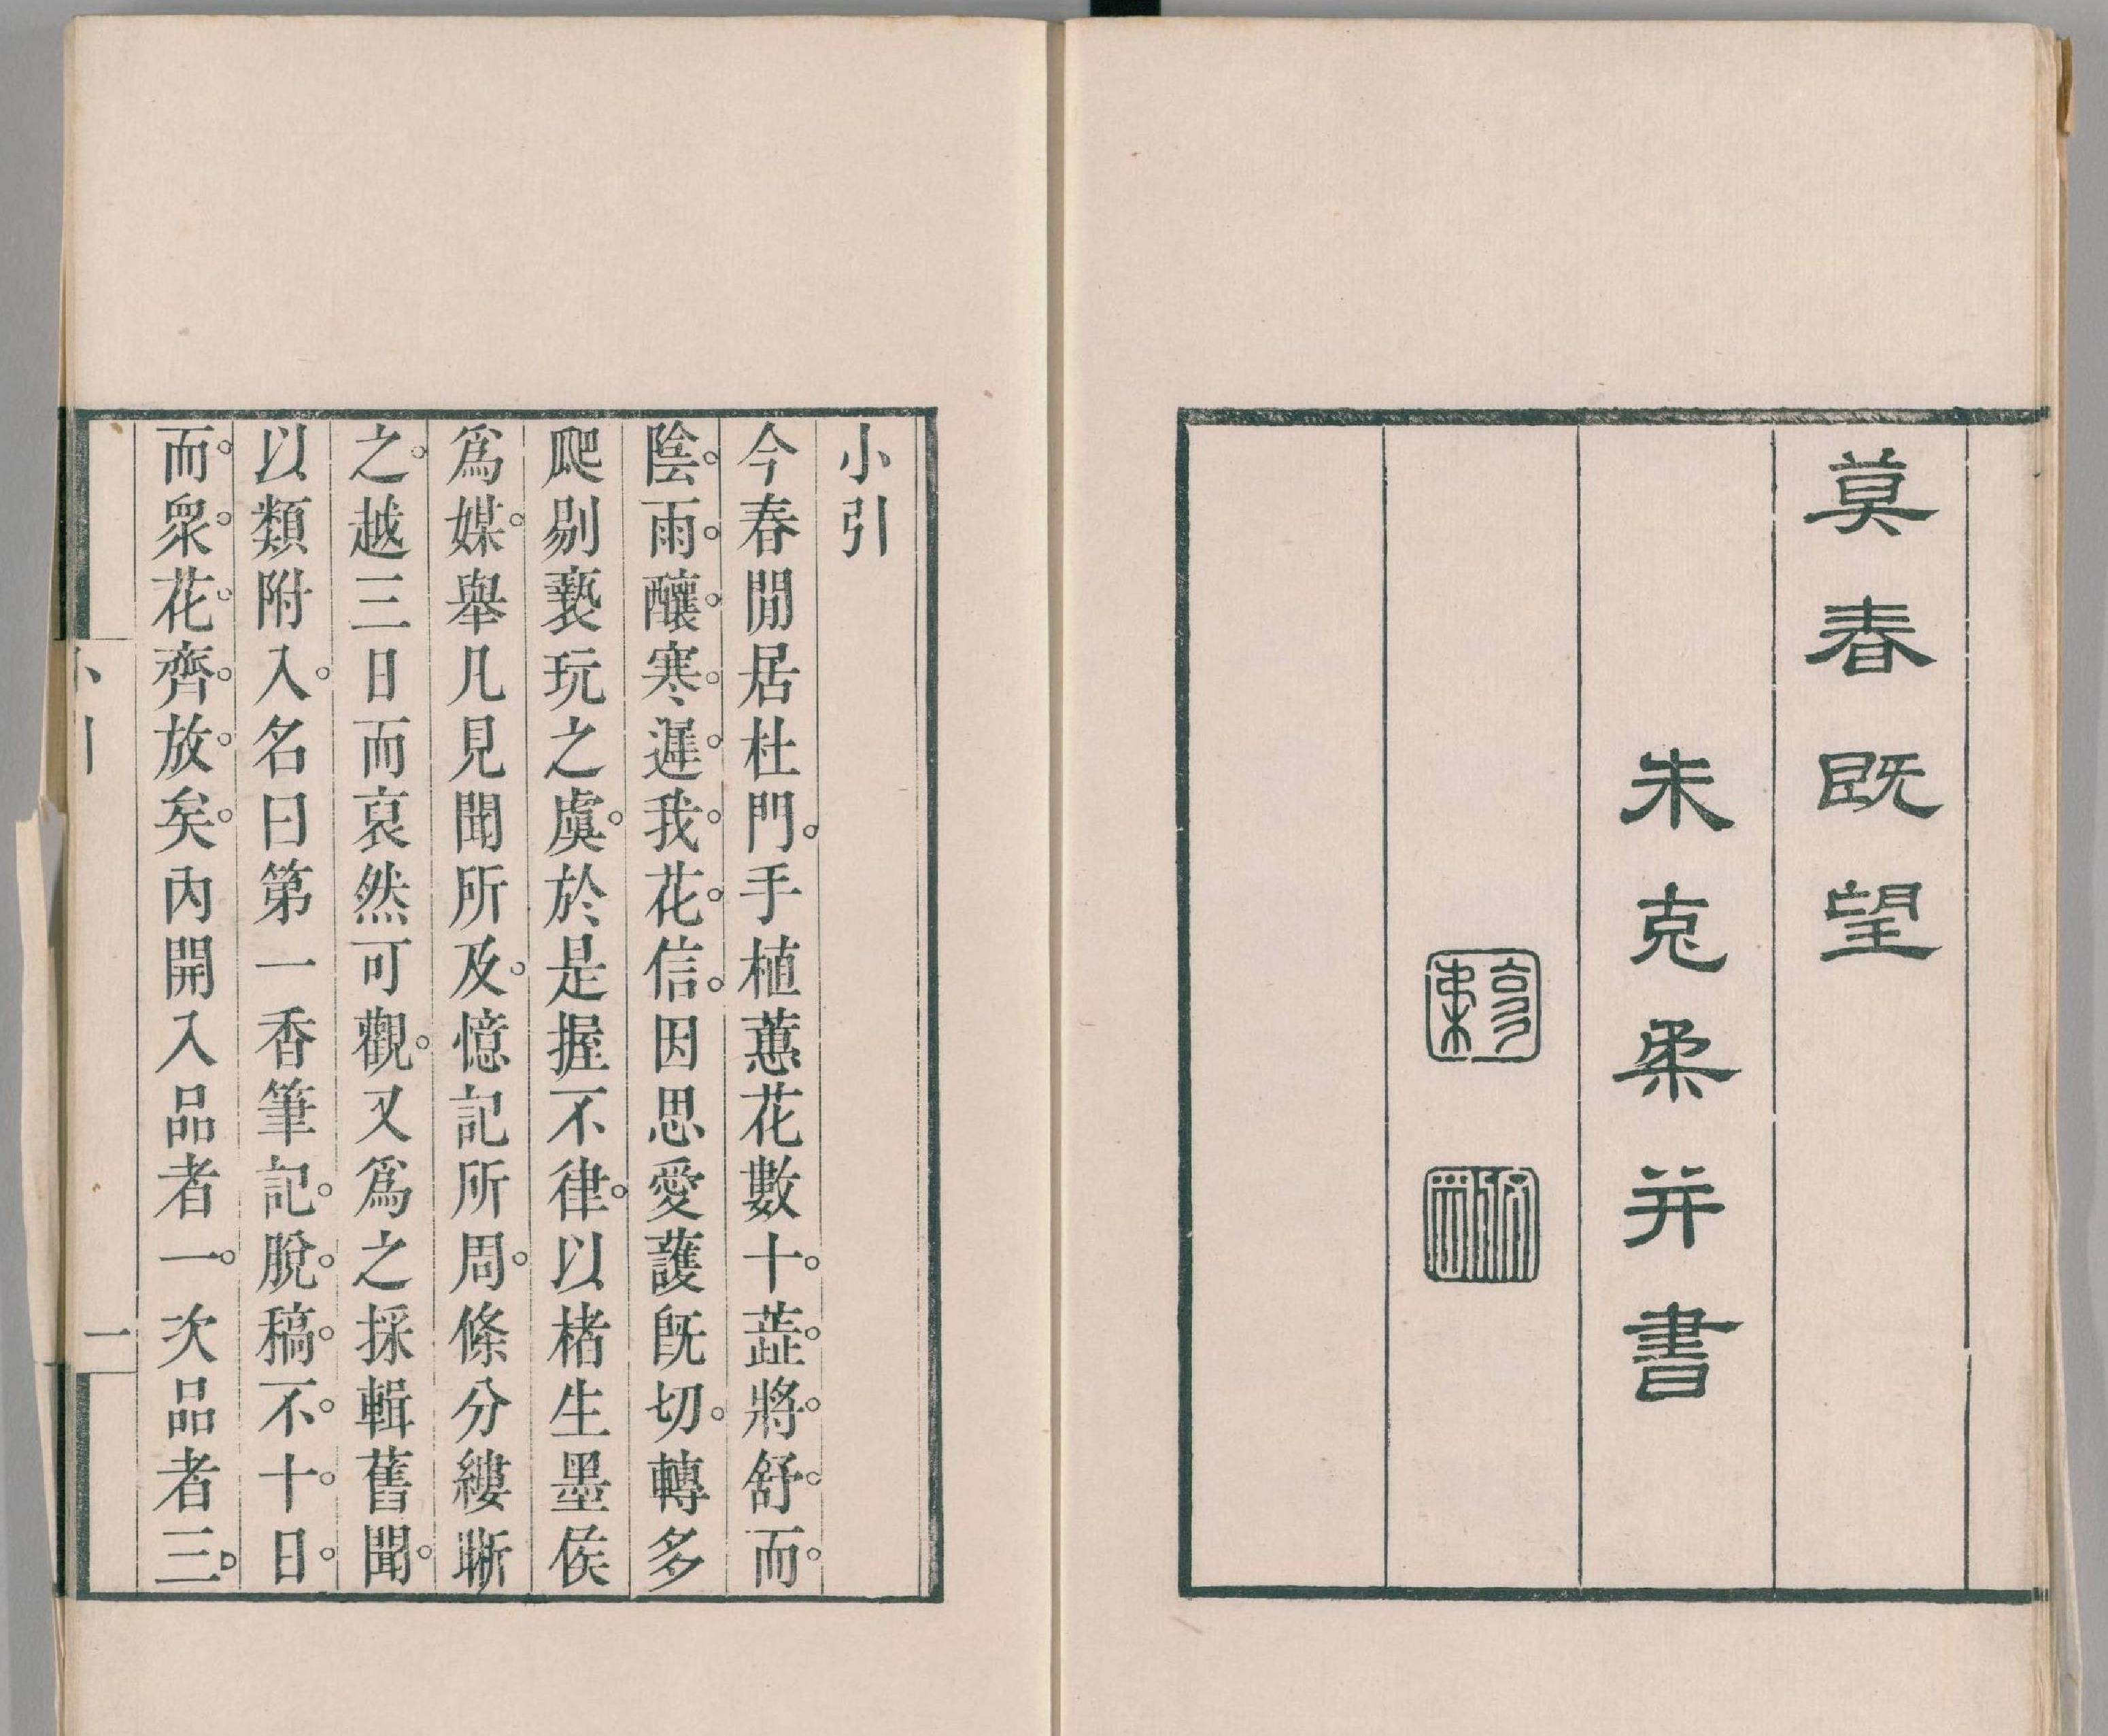 莫春既望
朱克柔并書
小引
今春閒居杜門。手植蕙花數十。蕋。將。舒。而。
陰。雨。釀。寒。遲。我。花。信。因思愛護既切。轉多
爬剔褻玩之虞。於是握不律。以楮生墨侯
爲媒。舉凡見聞所及。憶記所周。條分縷晰
之。越三日而裒然可觀。又爲之採輯舊聞。
以類附入。名曰第一香筆記。脫。稿。不。十。日。
而。衆。花。齊。放。矣。內開入品者一。次品者三。
小引
一